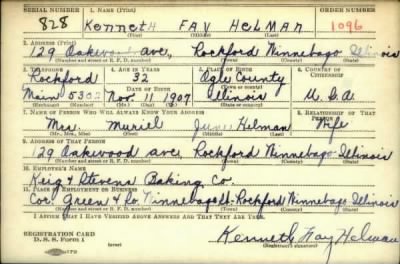 SERIAL NUMBER 1. NAME (Print) ORDER NUMBER
828 Kenneth FAY HELMAN 1096
2. ADDRESS (Print)
129 Oakwood ave, Rockford Winnebago Illinois
(Number and street or R. F. D. number) (Town) (County) (State)
3. TELEPHONE 4. AGE IN YEARS 5. PLACE OF BIRTH 6. COUNTRY OF CITIZENSHIP
Rockford 32 Ogle County
DATE OF BIRTH
Main 5302 Nov. 11 1907 Illinois U.S.A
(Exchange) (Number) (Mo.) (Day) (Yr.) (State or country)
7. NAME OF PERSON WHO WILL ALWAYS KNOW YOUR ADDRESS 8. RELATIONSHIP OF THAT PERSON
Mrs. Muriel June Helman Wife
(Mr., Mrs., Miss) (First) (Middle) (Last)
9. ADDRESS OF THAT PERSON
129 Oakwood ave, Rockford Winnebago-Illinois
(Number and street or R. F. D. number) (Town) (County) (State)
10. EMPLOYER'S NAME
Keig & Stevens Baking Co.
11. PLACE OF EMPLOYMENT OR BUSINESS
Cor. Green & So. Winnebago St- Rockford Winnebago Illinois
(Number and street or R. F. D. number) (Town) (County) (State)
I AFFIRM THAT I HAVE VERIFIED ABOVE ANSWERS AND THAT THEY ARE TRUE.
REGISTRATION CARD
D. S. S. Form 1 (over)
Kenneth Fay Helman